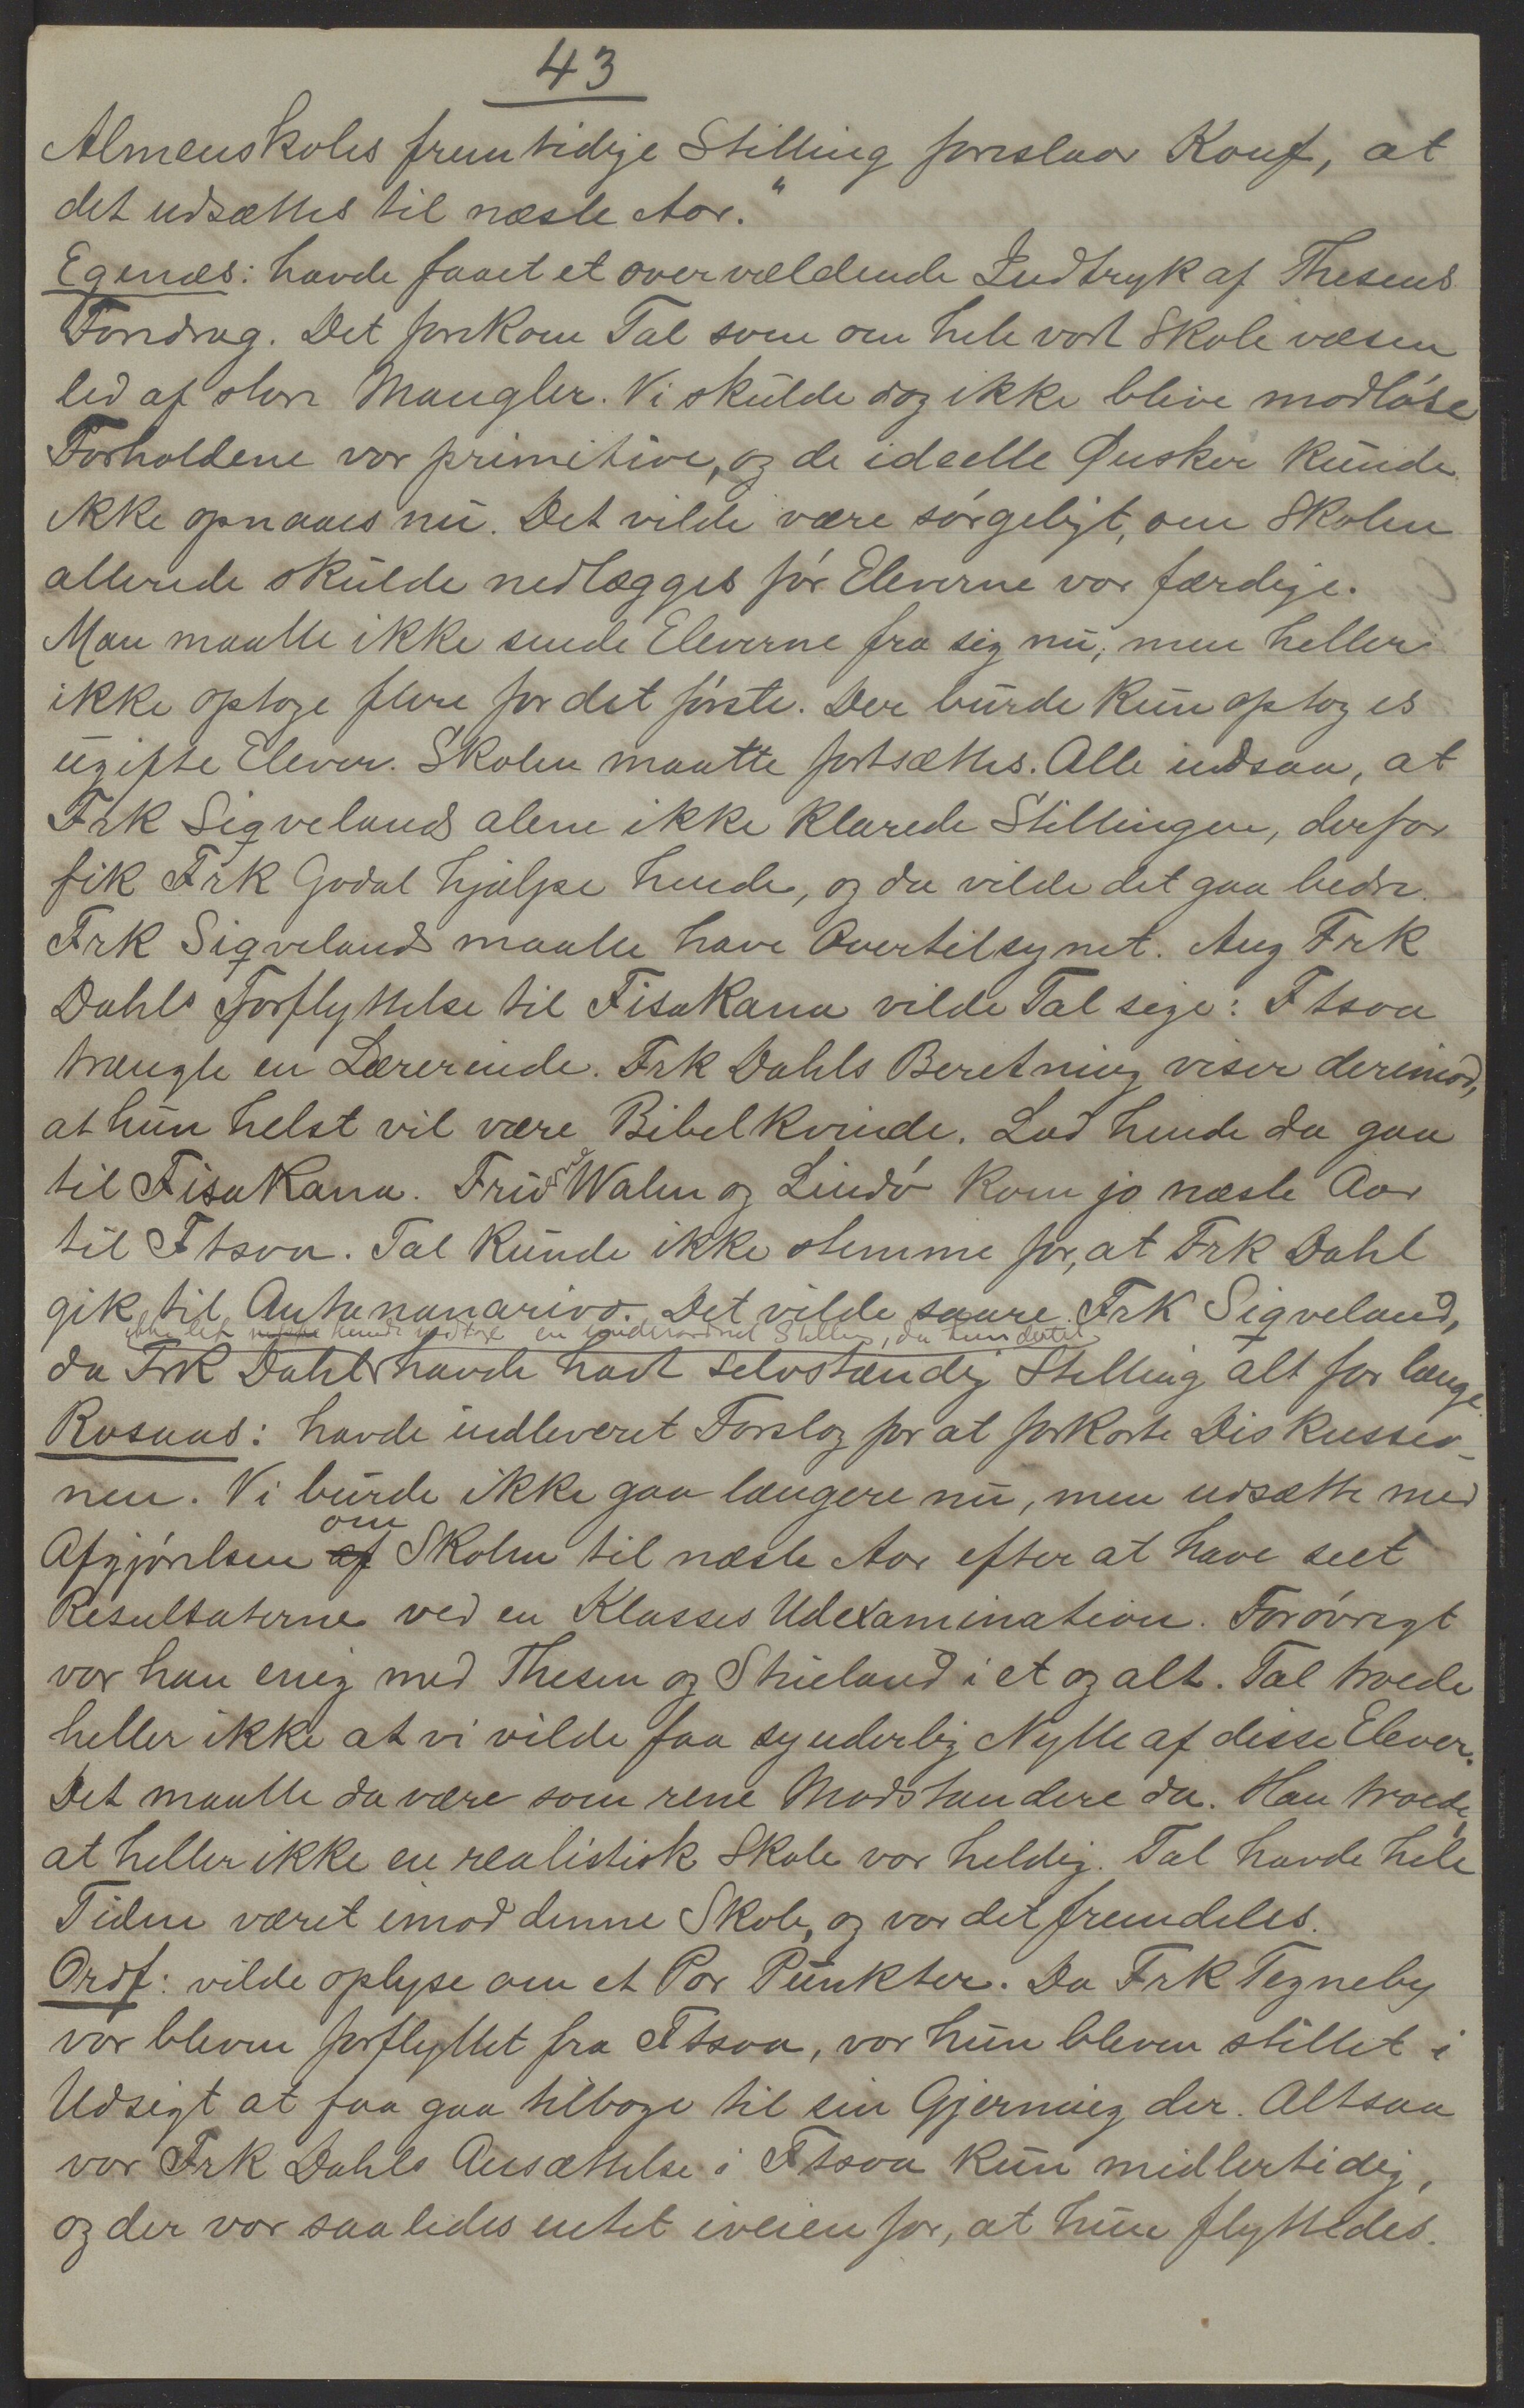 43
Almenskoles fremtidige Stilling foreslaar Konf, at
det udsættes til næste Aar."
Egenæs: havde faaet et overvældende Indtryk af Thesens
Foredrag. Det forekom Tal som om hele vort Skolevæsen
led af store Mangler. Vi skulde dog ikke blive modløse
Forholdene var primitive, og de ideelle Ønsker kunde
ikke opnaaes nu. Det vilde være sørgeligt, om Skolen
allerede skulde nedlægges før Eleverne var færdige.
Man maatte ikke sende Eleverne fra sig nu, men heller
ikke optage flere for det første. Der burde kun optages
ugifte Elever. Skolen maatte fortsættes. Alle indsaa, at
Frk Sigveland alene ikke klarede Stillingen, derfor
fik Frk Godal hjælpe hende, og da vilde det gaa bedre.
Frk Sigveland maatte have Overtilsynet. Ang Frk
Dahls Forflyttelse til Fisakana vilde Tal sige: Ftsoa
trængte en Lærerinde. Frk Dahls Beretning viser derimod,
at hun helst vil være Bibelkvinde. Lad hende da gaa
til Fisakana. Früerne Walen og Lindø kom jo næste Aar
til Ftsoa. Tal kunde ikke stemme for, at Frk Dahl
gik til Antananarivo. Det vilde saare Frk Sigveland,
ikke let kunde modtage en underordnet Stilling, da hun dertil
da Frk Dahl havde havt selvstændig Stilling alt for længe.
Rosaas: havde indleveret Forslag for at forkorte Diskussio-
nen. Vi burde ikke gaa længere nu, men udsætte med
Afgjørelsen af om Skolen til næste Aar efter at have seet
Resultaterne ved en Klasses Udexamination. Forøvrigt
var han enig med Thesen og Strieland i et og alt. Tal troede
heller ikke at vi vilde faa synderlig Nytte af disse Elever.
Det maatte da være som rene Modstandere da. Han troede,
at heller ikke en realistisk Skole var heldig. Tal havde hele
Tiden været imod denne Skole, og var det fremdeles.
Ordf: vilde oplyse om et Par Punkter. Da Frk Tegneby
var bleven forflyttet fra Ftsoa, var hun bleven stillet i
Udsigt at faa gaa tilbage til sin Gjerning der. Altsaa
var Frk Dahls Ansættelse i Ftsoa kun midlertidig,
og der var saaledes entet iveien for, at hun flyttedes.